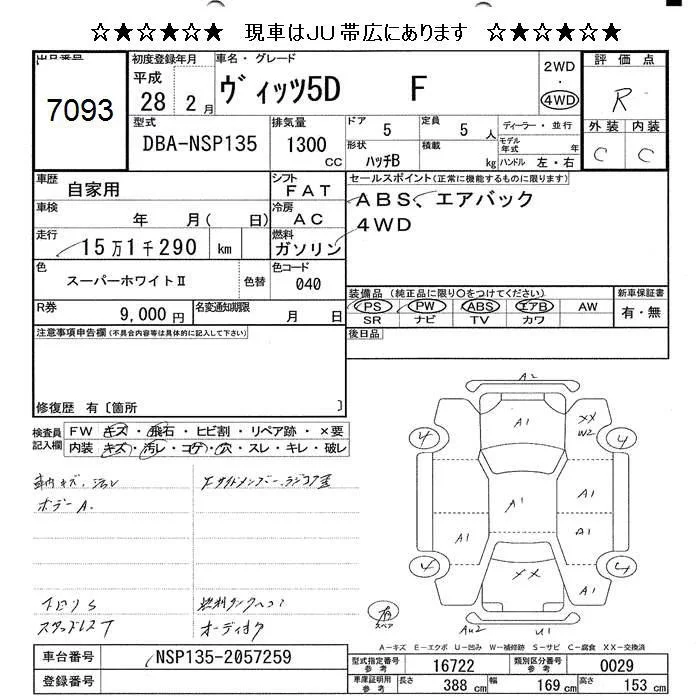 ☆★☆★☆★ 現車はJU帯広にあります ☆★☆★☆★
出品番号 初度登録年月 車名・グレード 評価点
7093 平成 28 2月 ヴィッツ5D F 2WD ・ 4WD R
型式 排気量 ドア 5 定員 5人 ディーラー・並行 外装 内装
DBA-NSP135 1300 CC 形状 ハッチB 積載 kg モデル年式 年 ハンドル 左・右 C C
車歴 自家用 シフト FAT セールスポイント(正常に機能するものに限ります)
車検 年 月( 日) 冷房 AC ABS、エアバック
走行 15万1千290 km 燃料 ガソリン 4WD
色 スーパーホワイトⅡ 色替 色コード 040
装備品(純正品に限り○をつけてください) 新車保証書
R券 9,000円 名変通知期限 月 日 PS PW ABS エアB AW 有・無
SR ナビ TV カワ
注意事項申告欄(不具合内容等は具体的に記入して下さい) 後日品
修復歴 有〔箇所 〕
検査員記入欄 FW キズ・飛石・ヒビ割・リペア跡・×要
内装 キズ・汚レ・コゲ・穴・スレ・キレ・破レ
車内キズ、汚レ
ボデーA.
下回りS
スタッドレスT
燃料タンクヘコミ
オーディオ
A2
A1
XX
W2
4
4
A1
A1
A1
A1
XX
A1
4
4
有
スペア
AU2
U1
A-キズ E-エクボ U-凹み W-補修跡 S-サビ C-腐食 XX-交換済
車台番号 NSP135-2057259 型式指定番号参考 16722 類別区分番号参考 0029
登録番号 車庫証明用参考 長さ 388cm 幅 169cm 高さ 153cm